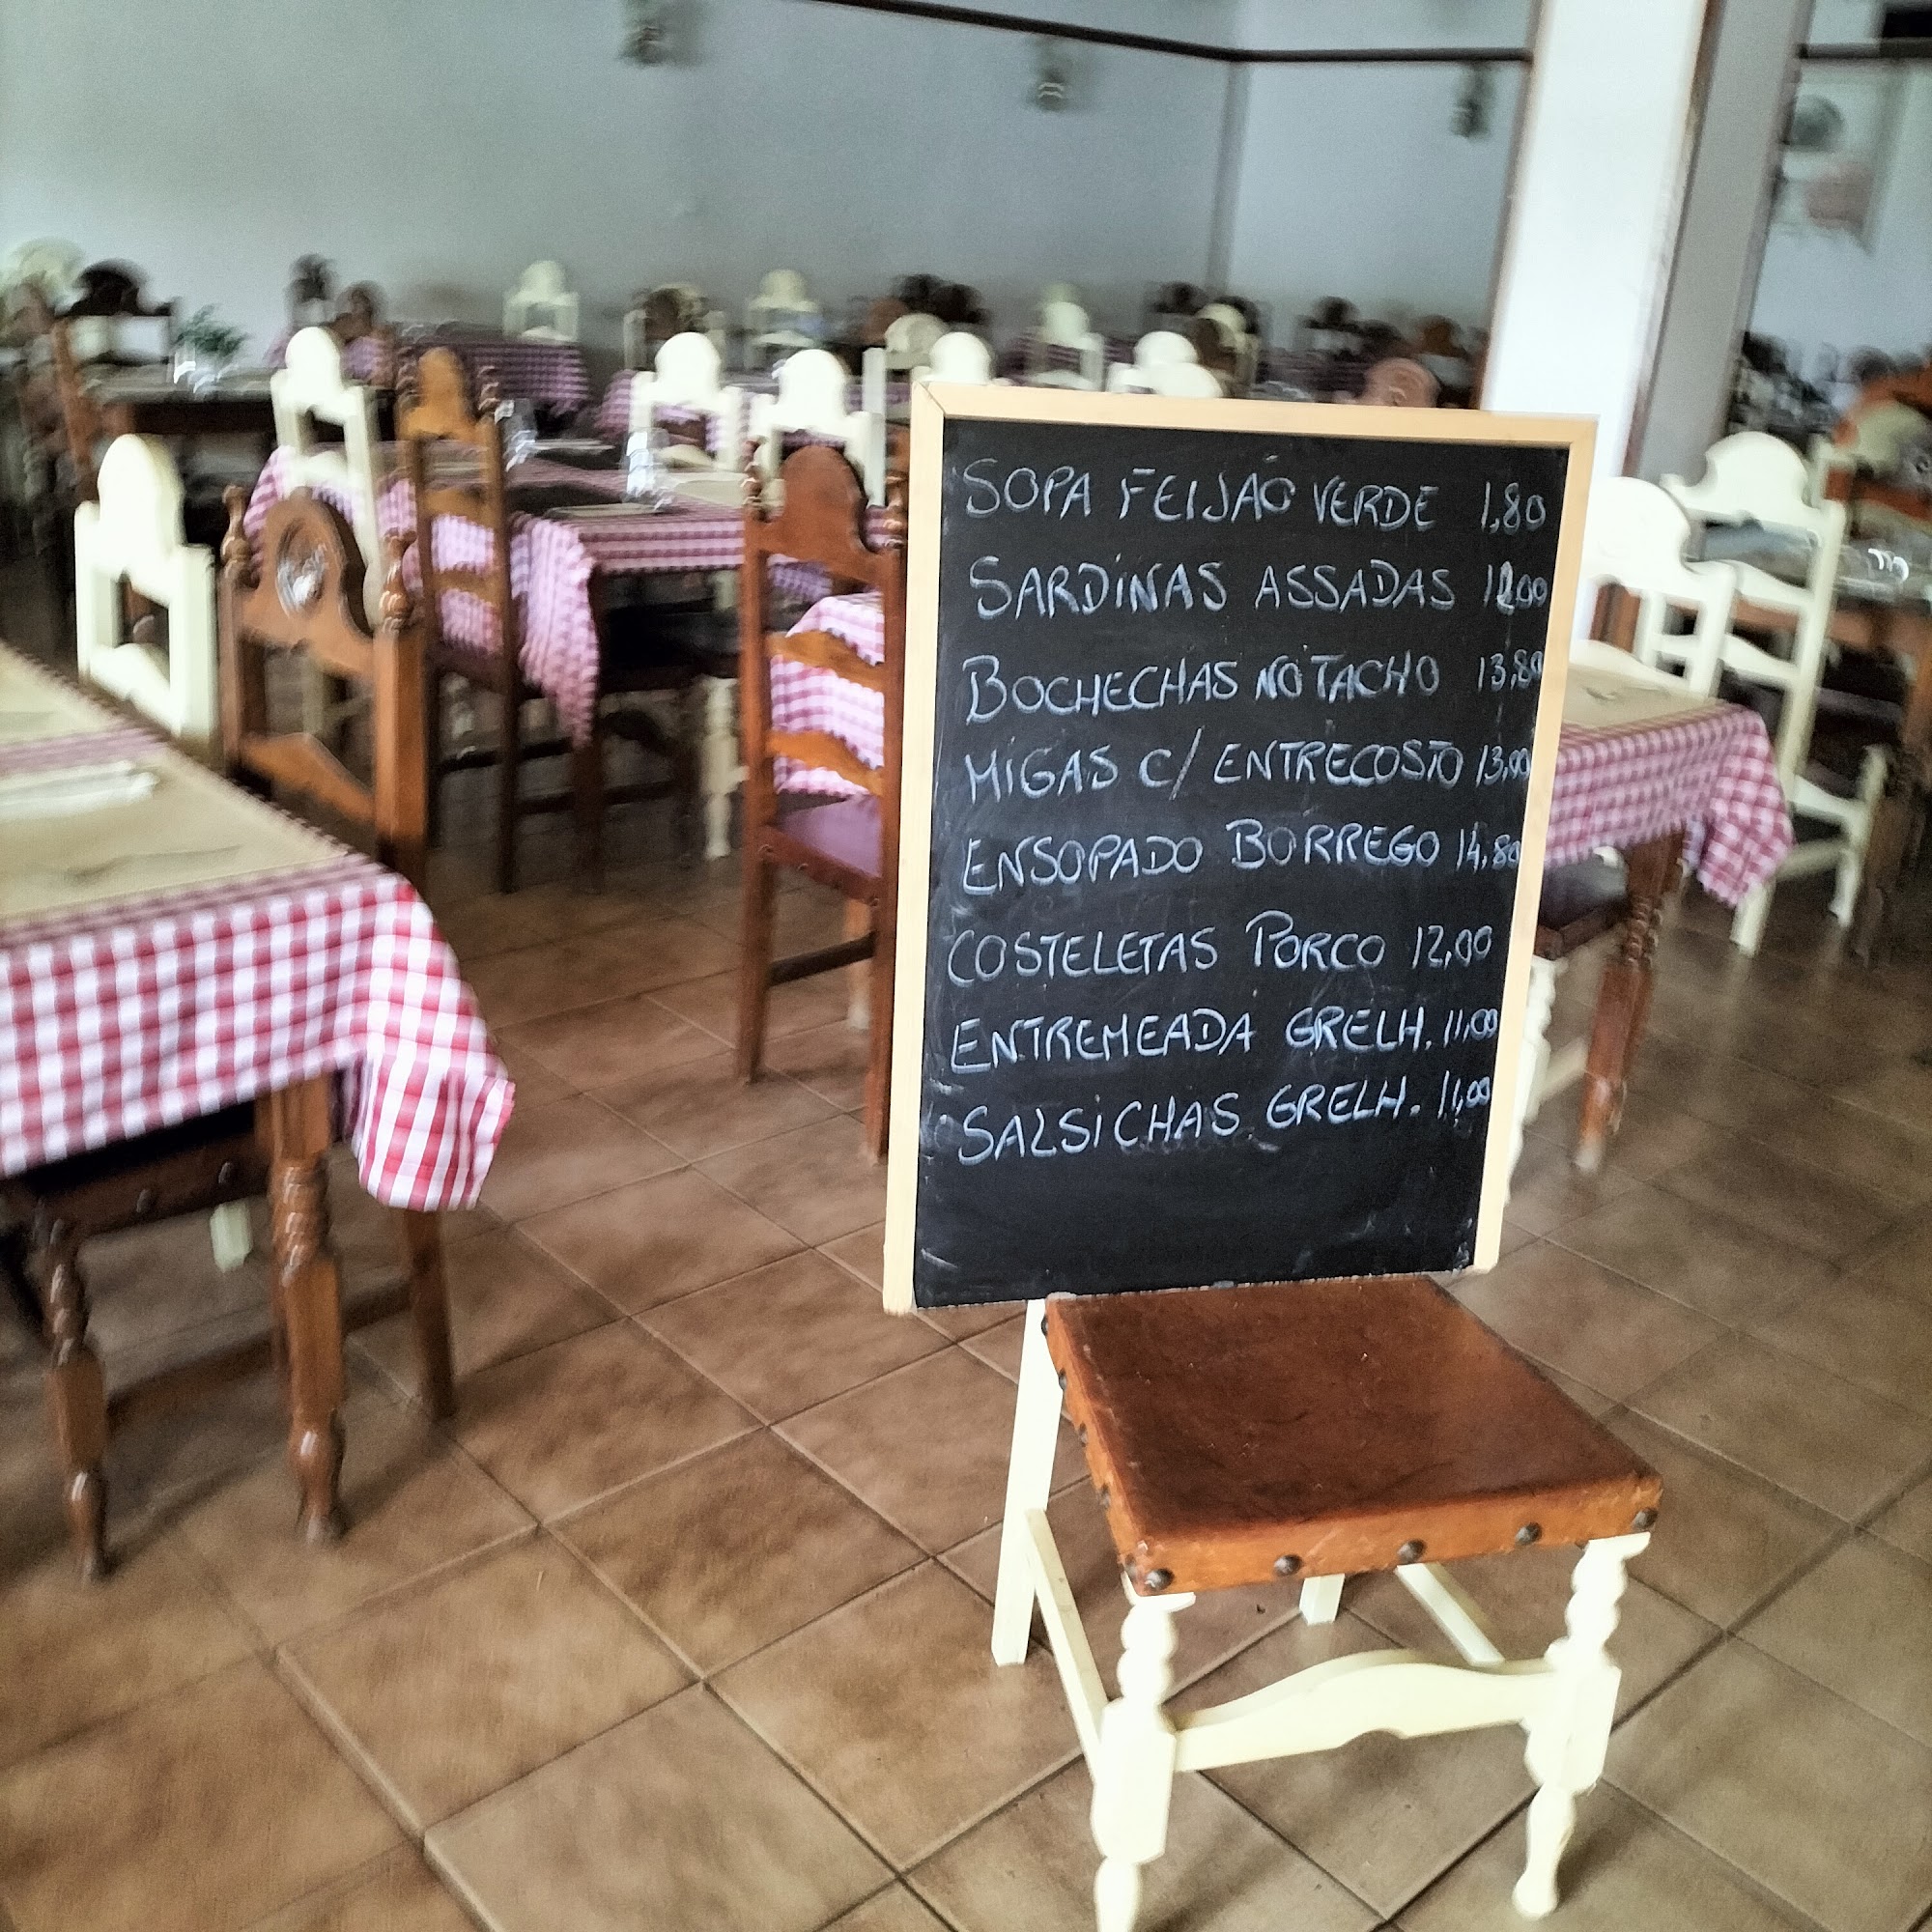 SOPA FEIJÃO VERDE 1,80
SARDINAS ASSADAS 12,00
BOCHECHAS NO TACHO 13,80
MIGAS C/ ENTRECOSTO 13,00
ENSOPADO BORREGO 14,80
COSTELETAS PORCO 12,00
ENTREMEADA GRELH. 11,00
SALSICHAS GRELH. 11,00